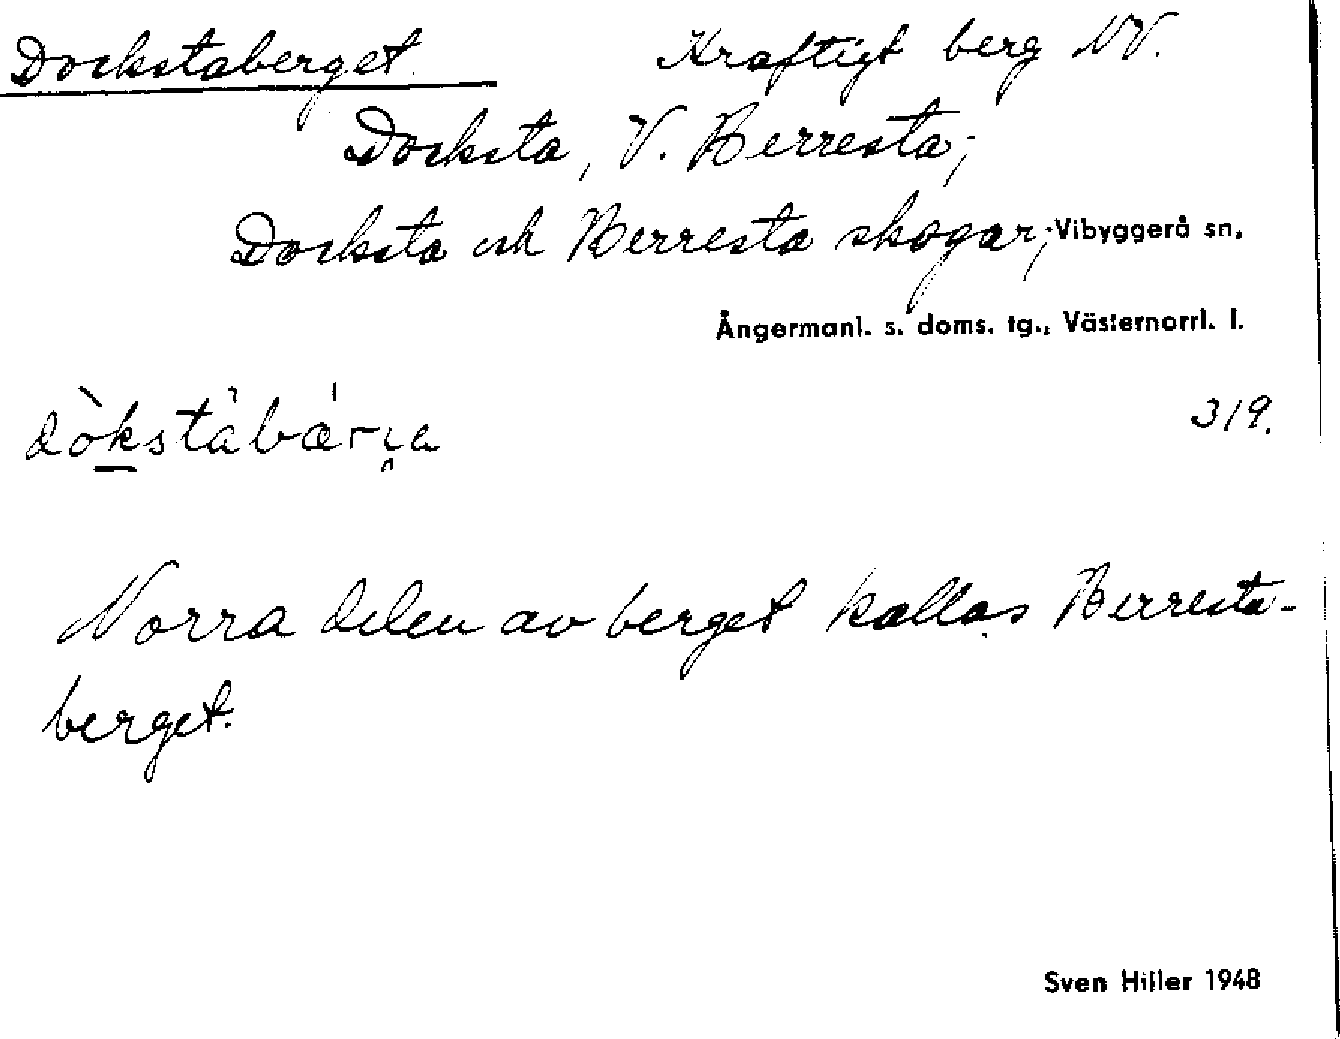 Dockstaberget. Kraftigt berg NV.
Docksta, V. Berresta;
Docksta och Berresta skogar; Vibyggerå sn.
Ångermanl. s. doms. tg., Västernorrl. l.
319.
Norra delen av berget kallas Berresta-
berget.
Sven Hiller 1948